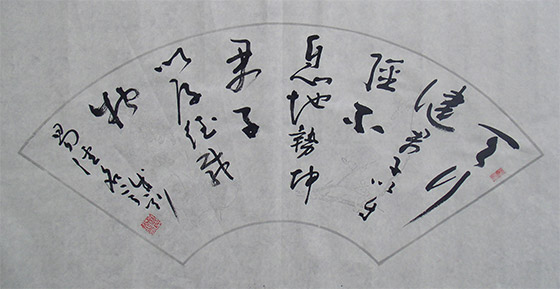 天行
健
君子以自
强不
息地勢坤
君子
以厚德載
物